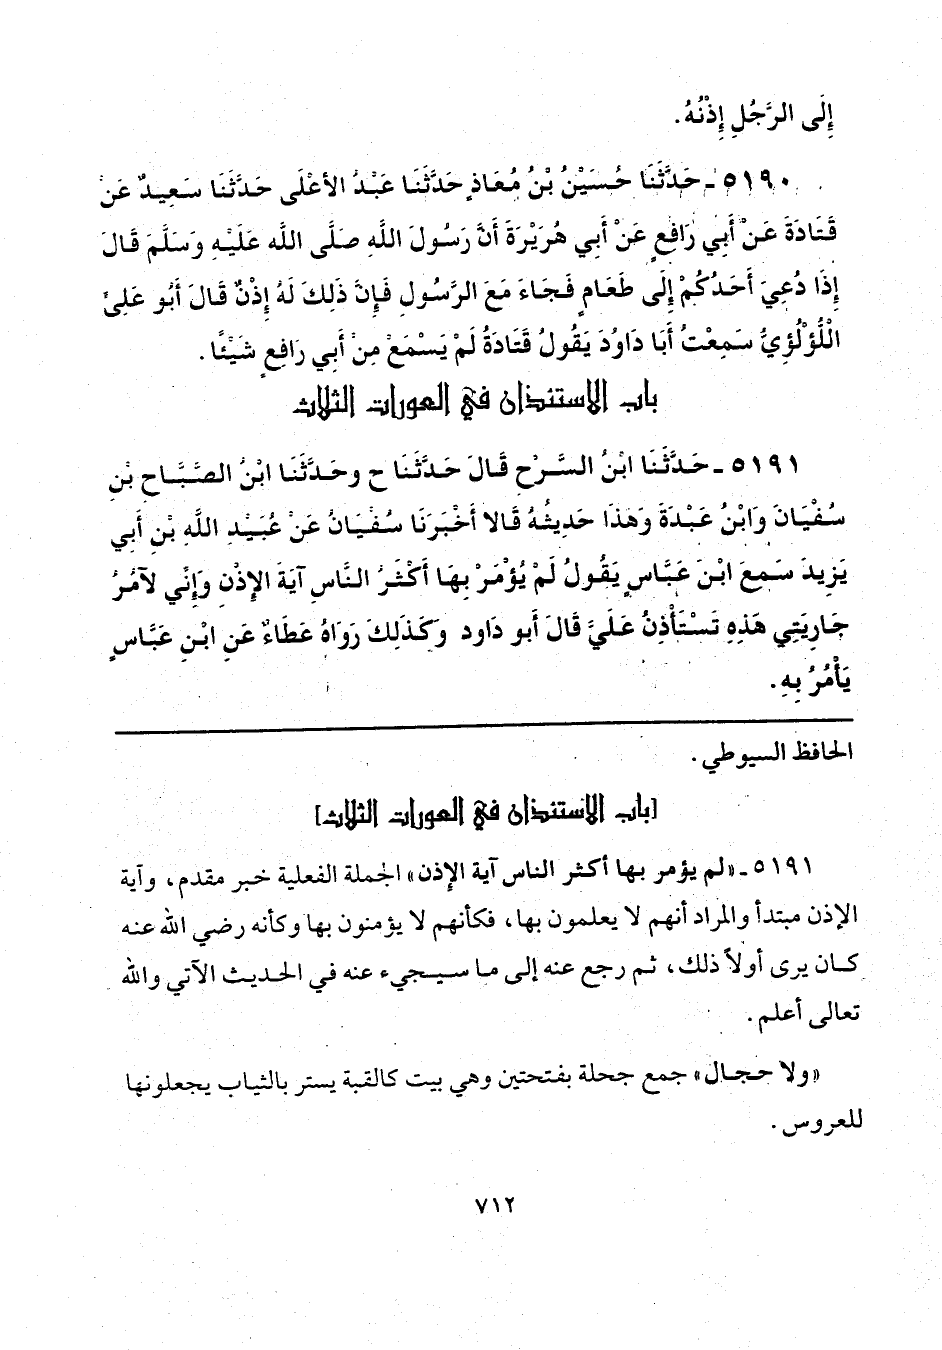 إِلَى الرَّجُلِ إِذْنُهُ.
٥١٩٠ ـ حَدَّثَنَا حُسَيْنُ بْنُ مُعَاذٍ حَدَّثَنَا عَبْدُ الأَعْلَى حَدَّثَنَا سَعِيدٌ عَنْ
قَتَادَةَ عَنْ أَبِي رَافِعٍ عَنْ أَبِي هُرَيْرَةَ أَنَّ رَسُولَ اللَّهِ صَلَّى اللَّه عَلَيْهِ وَسَلَّمَ قَالَ
إِذَا دُعِيَ أَحَدُكُمْ إِلَى طَعَامٍ فَجَاءَ مَعَ الرَّسُولِ فَإِنَّ ذَلِكَ لَهُ إِذْنٌ قَالَ أَبُو عَلِيٍّ
اللُّؤْلُؤِيُّ سَمِعْتُ أَبَا دَاوُدَ يَقُولُ قَتَادَةُ لَمْ يَسْمَعْ مِنْ أَبِي رَافِعٍ شَيْئًا.
باب الاستئذان في العورات الثلاث
٥١٩١ ـ حَدَّثَنَا ابْنُ السَّرْحِ قَالَ حَدَّثَنَا ح وحَدَّثَنَا ابْنُ الصَّبَّاحِ بْنِ
سُفْيَانَ وَابْنُ عَبْدَةَ وَهَذَا حَدِيثُهُ قَالا أَخْبَرَنَا سُفْيَانُ عَنْ عُبَيْدِ اللَّهِ بْنِ أَبِي
يَزِيدَ سَمِعَ ابْنَ عَبَّاسٍ يَقُولُ لَمْ يُؤْمَرْ بِهَا أَكْثَرُ النَّاسِ آيَةَ الإِذْنِ وَإِنِّي لآمُرُ
جَارِيَتِي هَذِهِ تَسْتَأْذِنُ عَلَيَّ قَالَ أَبو دَاود وَكَذَلِكَ رَوَاهُ عَطَاءٌ عَنِ ابْنِ عَبَّاسٍ
يَأْمُرُ بِهِ.
الحافظ السيوطي.
[باب الاستئذان في العورات الثلاث]
٥١٩١ ـ «لم يؤمر بها أكثر الناس آية الإذن» الجملة الفعلية خبر مقدم، وآية
الإذن مبتدأ والمراد أنهم لا يعلمون بها، فكأنهم لا يؤمنون بها وكأنه رضي الله عنه
كان يرى أولاً ذلك، ثم رجع عنه إلى ما سيجيء عنه في الحديث الآتي والله
تعالى أعلم.
«ولا حجال» جمع جحلة بفتحتين وهي بيت كالقبة يستر بالثياب يجعلونها
للعروس.
٧١٢